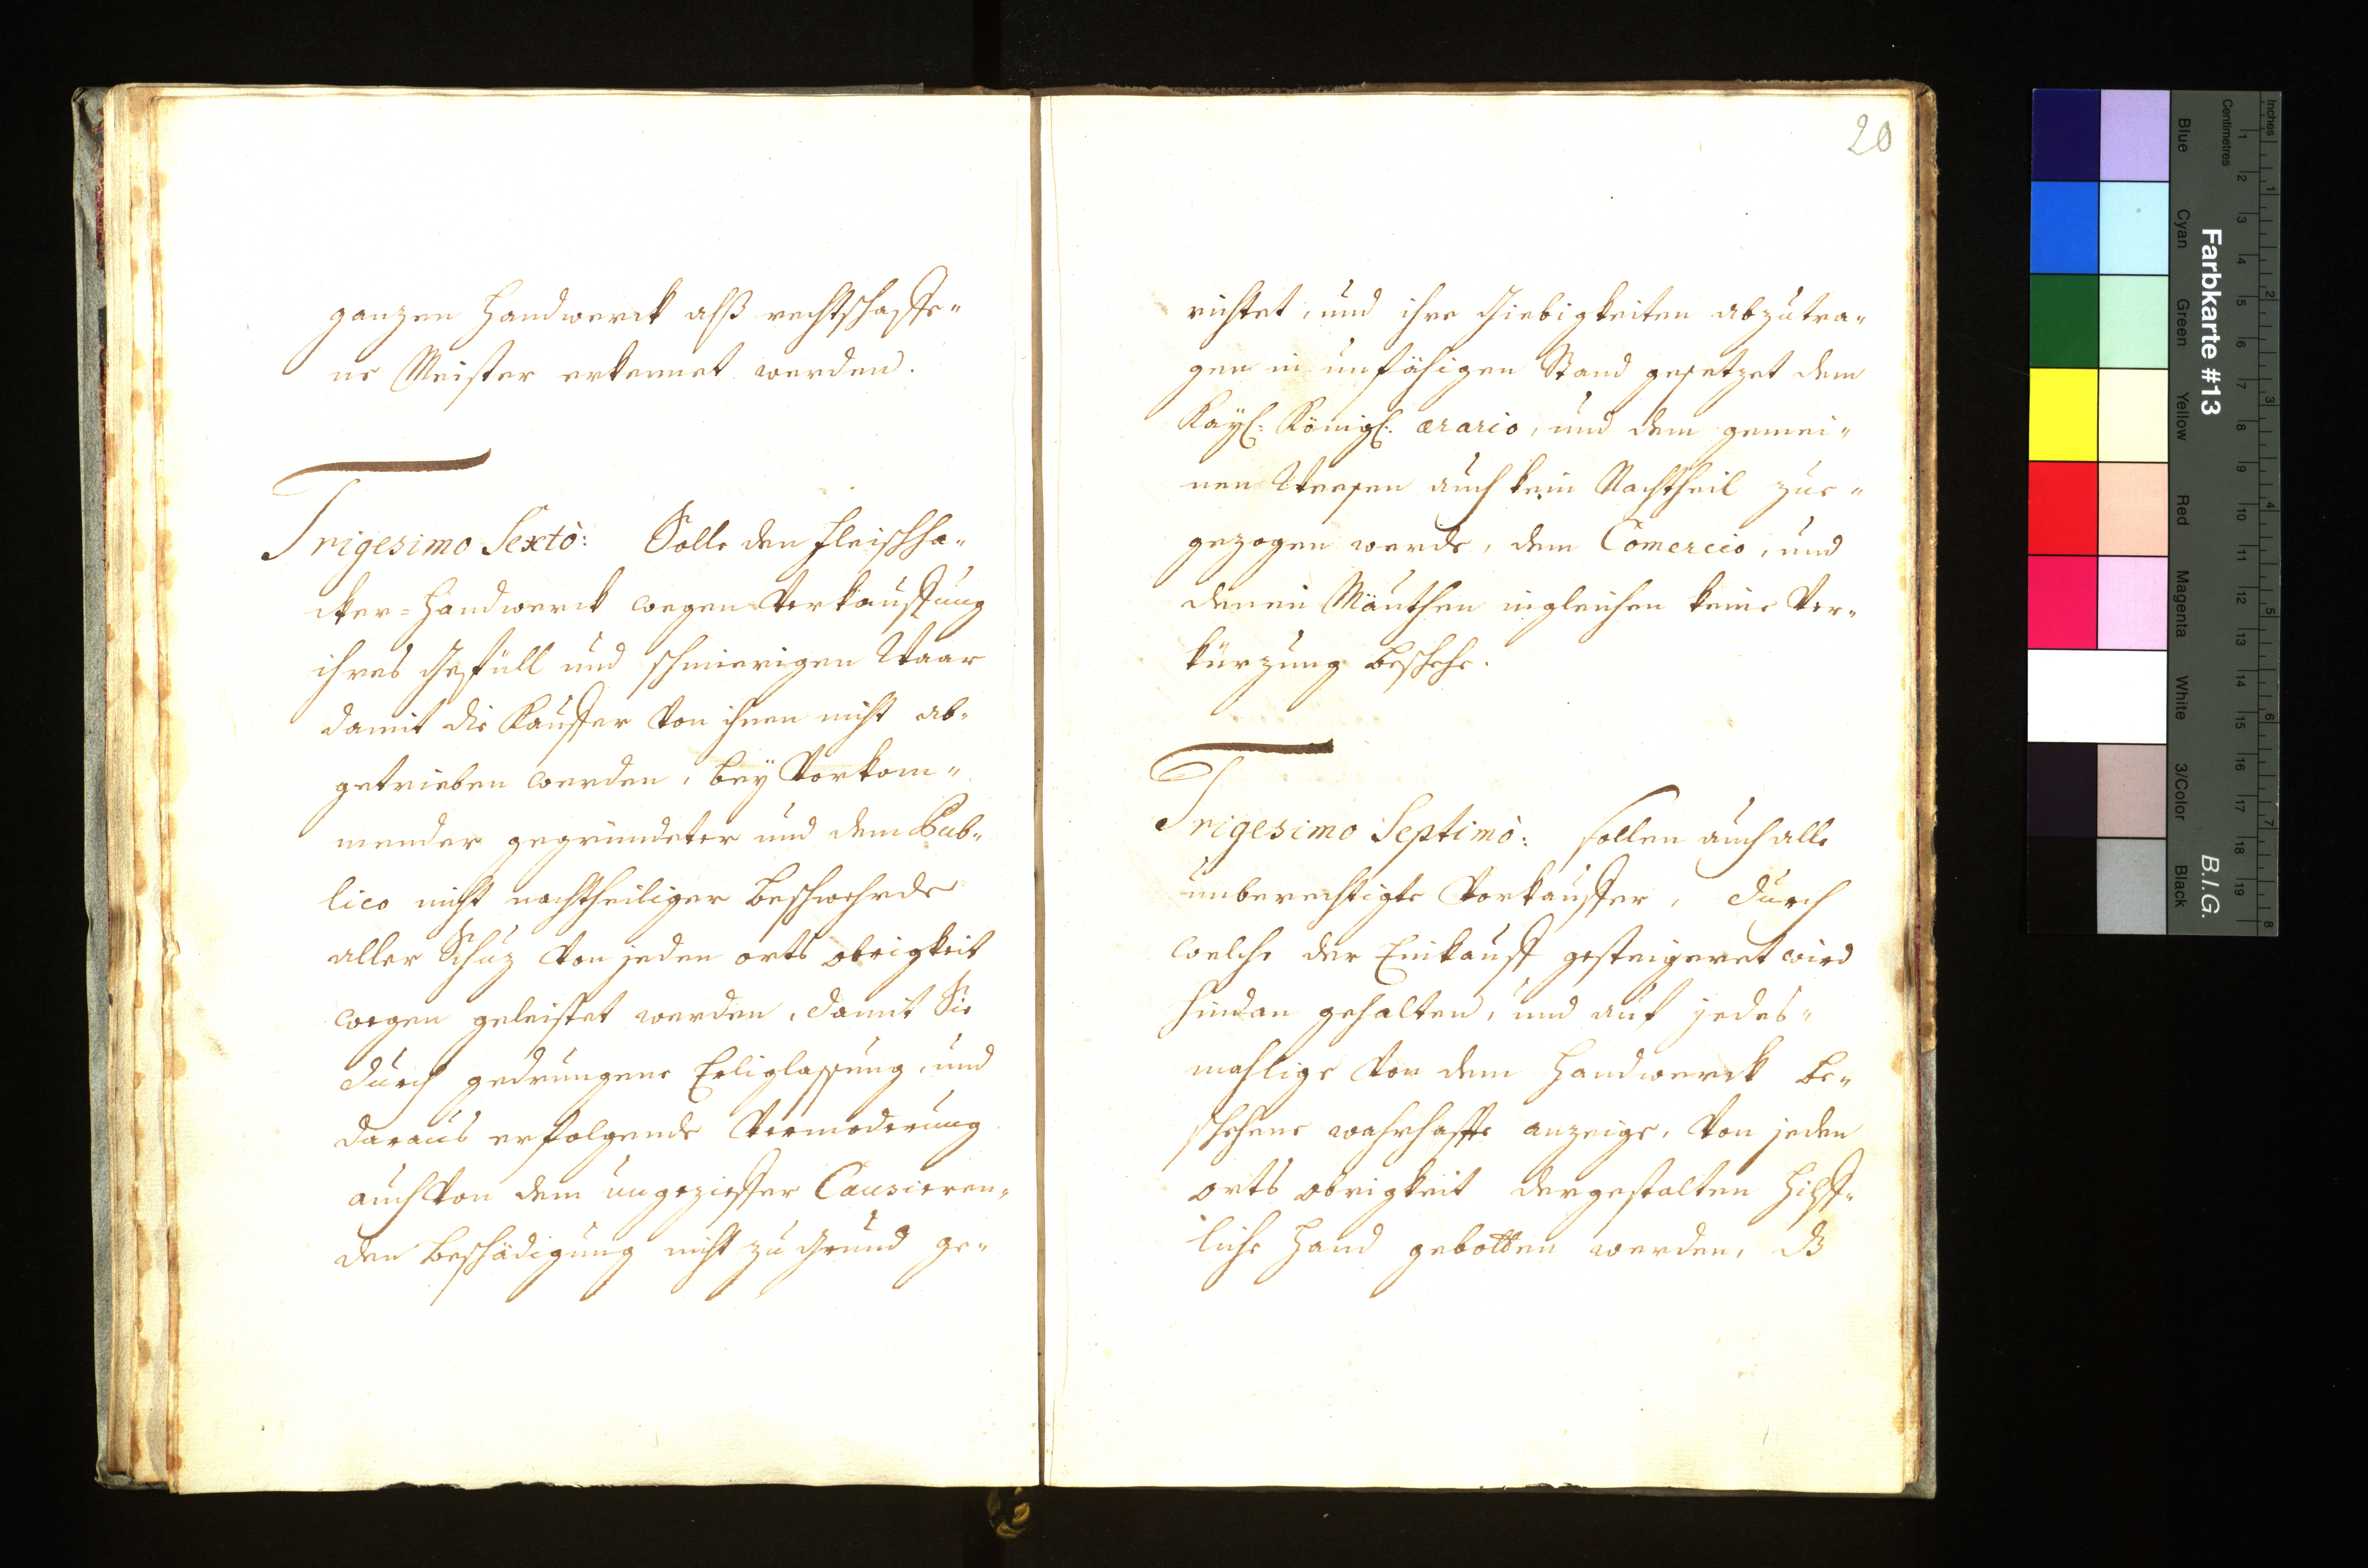 ganzen Handwerck alß rechtschaffe„
ne Meister erkennet werden.
Trigesimo Sextò: Solle den Fleischha„
cker=Handwerck wegen Verkauffung
ihres Gefüll und schmierigen Waar
damit die Kauffer von ihnen nicht ab„
getrieben werden, bey Vorkom„
mender gegründeter und dem Pub„
lico nicht nachtheiliger Beschwehrde
aller Schuz von jeden orts obrigkeit
wegen geleistet werden, damit Sie
durch gedrungene Erliglassung, und
daraus erfolgende Vermoderung
auch von dem ungeziffer Causieren„
den Beschädigung nicht zu Grund ge„
20
richtet, und ihre Giebigkeiten abzutra„
gen in unfähigen Stand gesetzet dem
Kayl: Königl: ærario, und dem gemei„
nen Weesen auch kein Nachtheil zue„
gezogen werde, dem Comercio, und
denen Mäuthen ingleichen keine Ver„
kürzung beschehe.
Trigesimo Septimò: sollen auch alle
unberechtigte Vorkauffer, durch
welche der Einkauff gesteigeret wird
hindan gehalten, und auf jedes„
mahlige von dem Handwerck be„
schehene wahrhaffte anzeige, von jeden
orts obrigkeit dergestalten Hilff„
liche Hand gebotten werden, dß
Farbkarte #13
B.I.G.
Inches
Centimetres
1 2 3 4 5 6 7 8
1 2 3 4 5 6 7 8 9 10 11 12 13 14 15 16 17 18 19
Blue Cyan Green Yellow Red Magenta White 3/Color Black